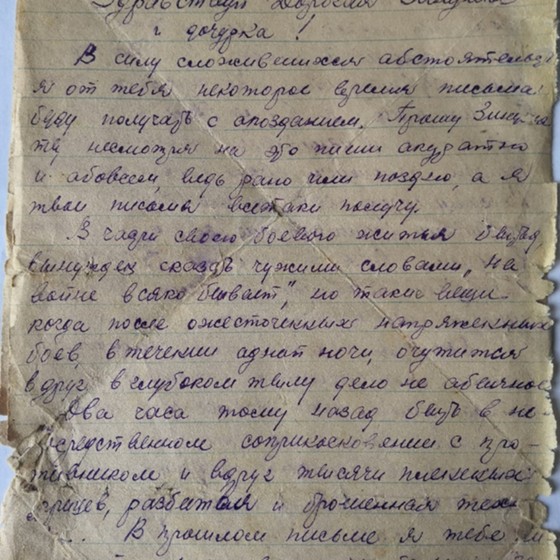 Здравствуй Дорогая
и дочурка!
В силу сложившихся абстоятельств
я от тебя некоторое время письма
буду получать с опозданием. Прошу
ты несмотря на это пиши акуратно
и обо всем, ведь рано или поздно, а я
твои письма всетаки получу.
В части своего боевого житья бытья
вынужден сказать чужими словами, "на
войне всяко бывает", но такие вещи
когда после ожесточенных напряженных
боев, в течении одной ночи, очутится
вдруг в глубоком тылу дело не обычное
Два часа тому назад быть в не-
посредственном соприкосновении с про-
тивником и вдруг тысячи пленных
разбитая и брошенная тех-
В прошлом письме я тебе